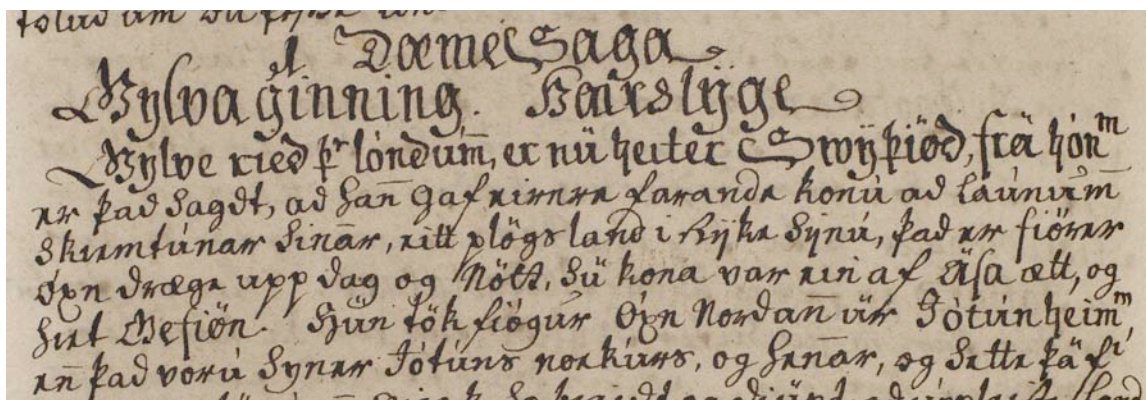 1 DæmeSaga
Gylva ginning. Haarslÿge
Gylve ried þr lóndum̅, er nü heiter Swÿþiød, frä hón^m
er þad sagdt, ad han̅ gaf eirnre farande konu ad launum̅
skiemtunar sinn̅ar, eitt plögsland i Rÿke sÿnu, þad er fiörer
öxn dræge upp dag og Nött, sü kona var ein af Asa ætt, og
hiet Gefiön. Hün tök fiögur Öxn Nordan̅ ür Jötunheim^m,
en̅ þad voru syner Jötuns noekurs, og hen̅ar, og sette þä f^i